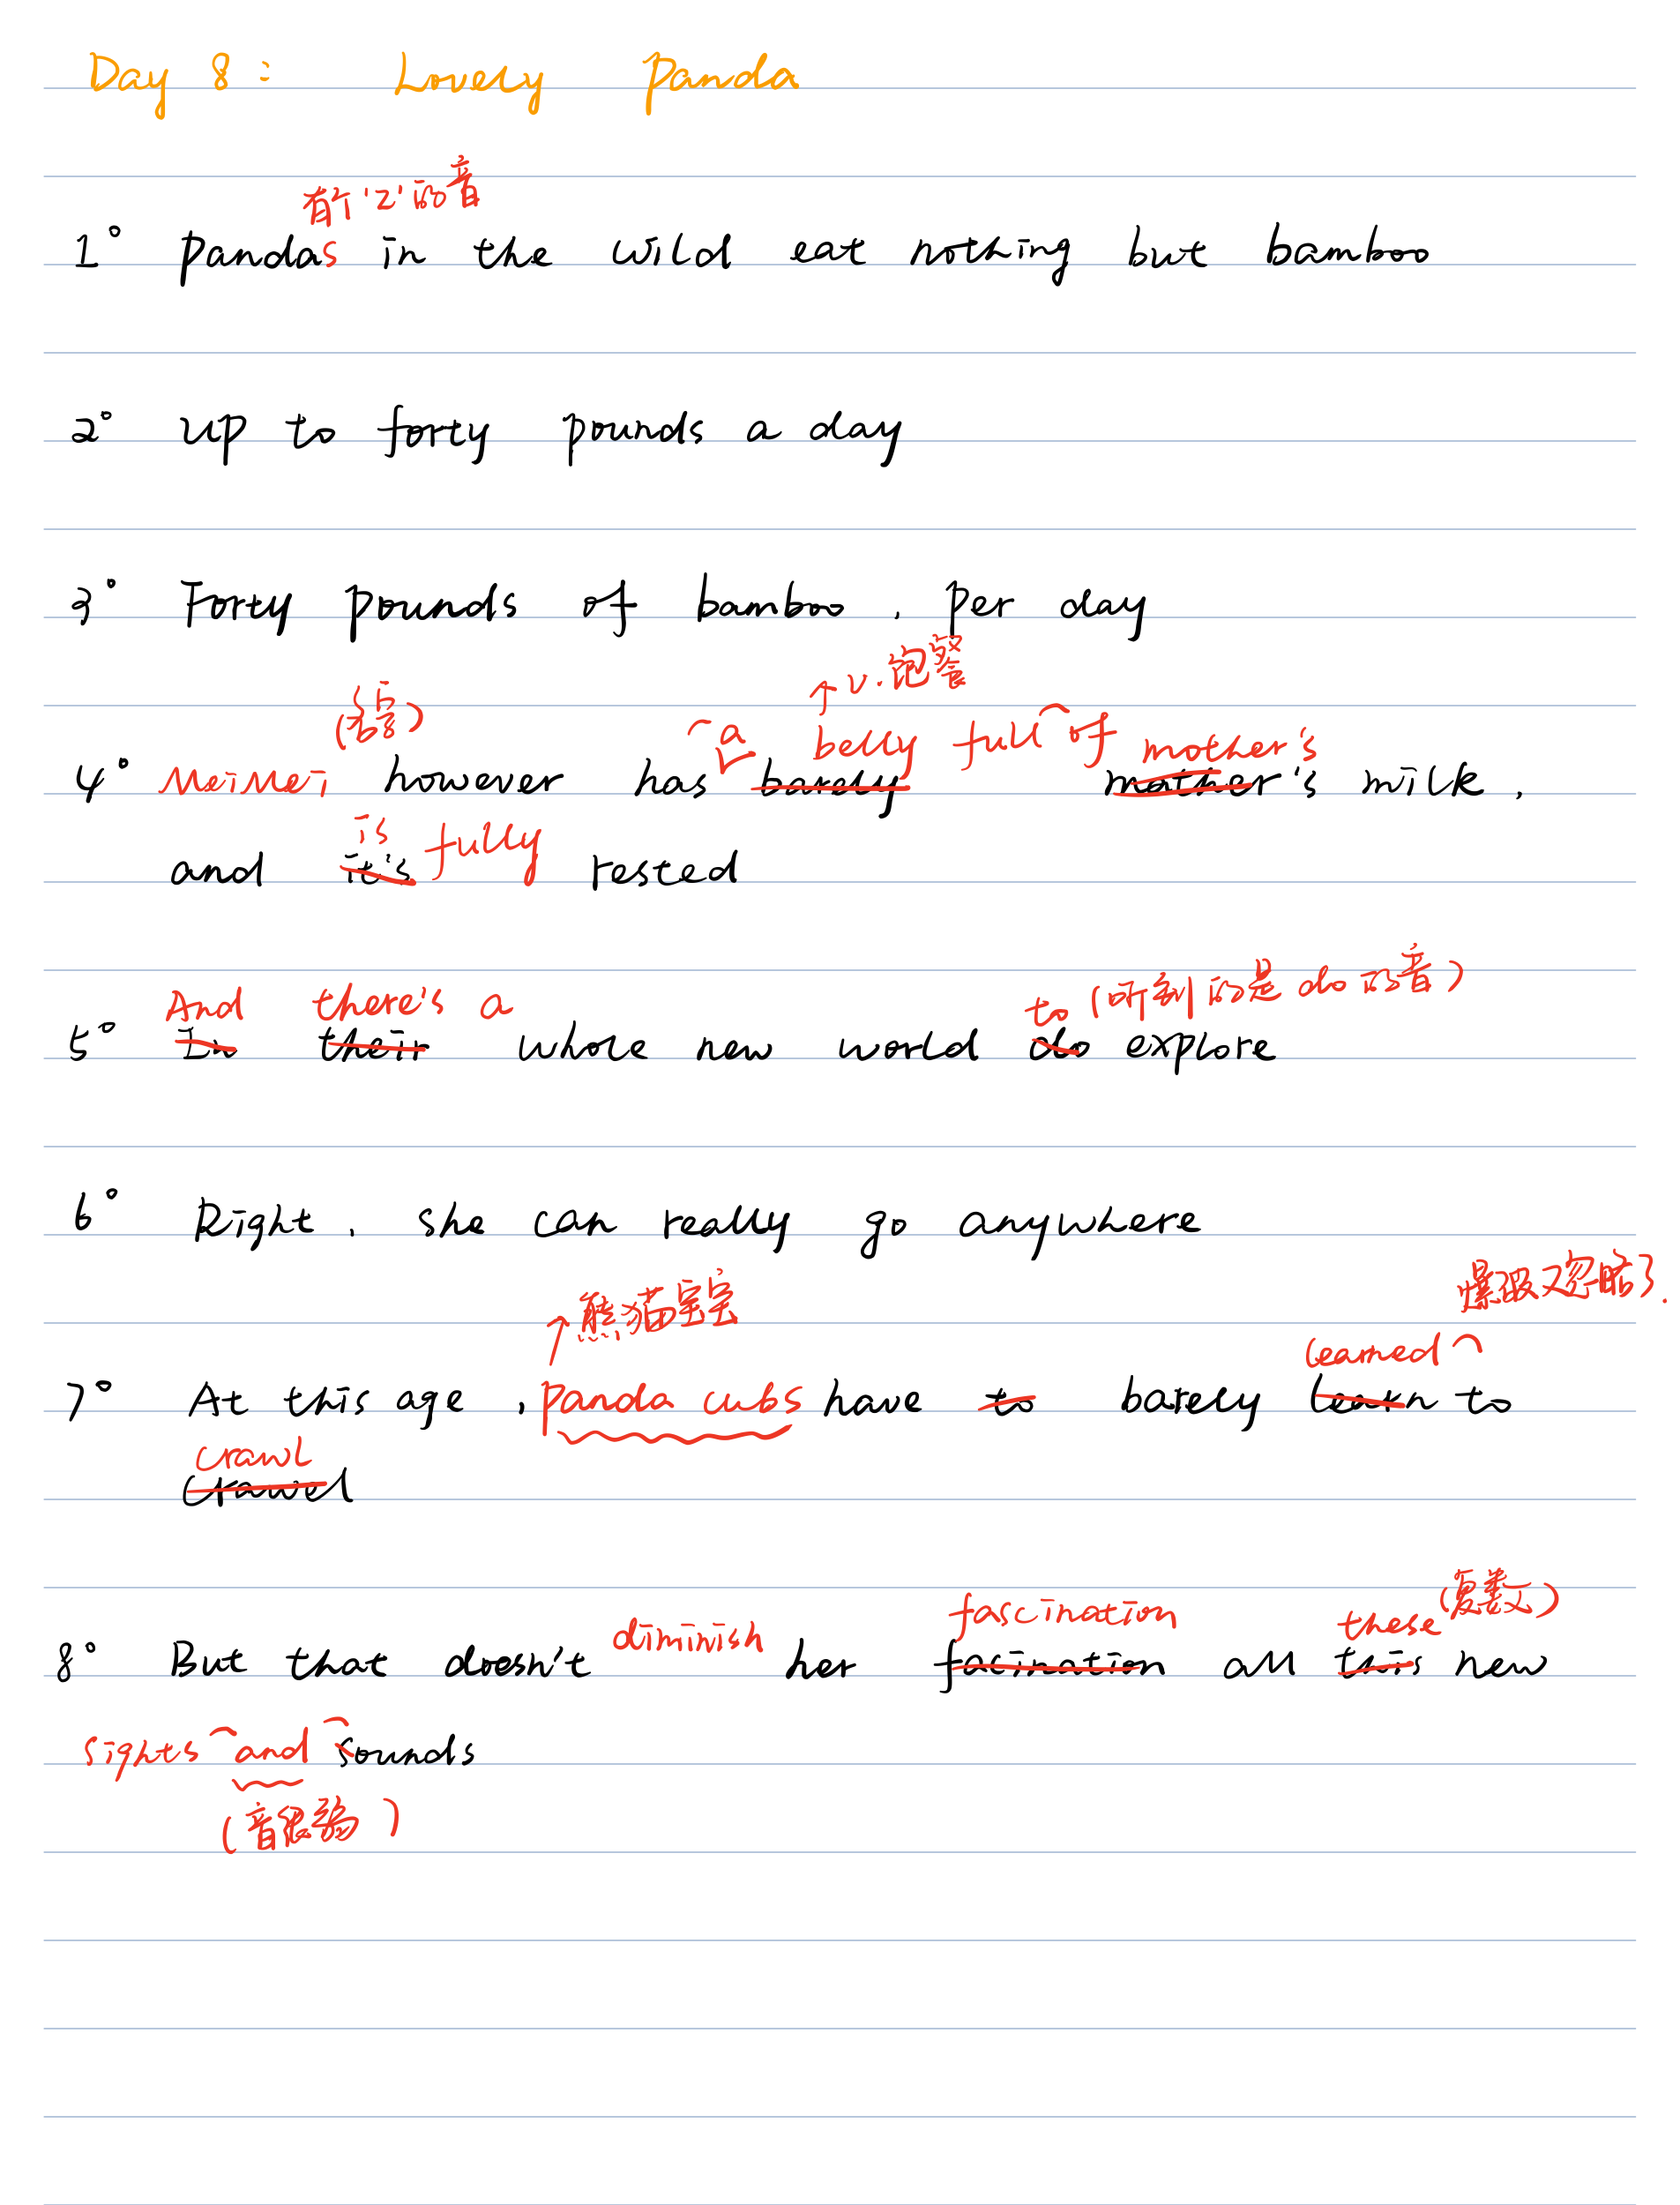 Day 8: Lovely Panda
有个'z'的音
1° Pandas in the wild eat nothing but bamboo
2° Up to forty pounds a day
3° Forty pounds of bamboo, per day
↑ v. 饱餐
(名字)
a belly full of mother's
4° MeiMei however has barely mother's milk,
is fully
and it's rested
And there's a to (听到的是 do 的音)
5° In their whole new world do explore
6° Right, she can really go anywhere
↑熊猫宝宝 爆破又忽略了.
learned
7° At this age, panda cubs have to barely learn to
crawl
crawel
diminish fascination these (复数)
8° But that doesn't her facination all this new
sights and sounds
(音很弱)